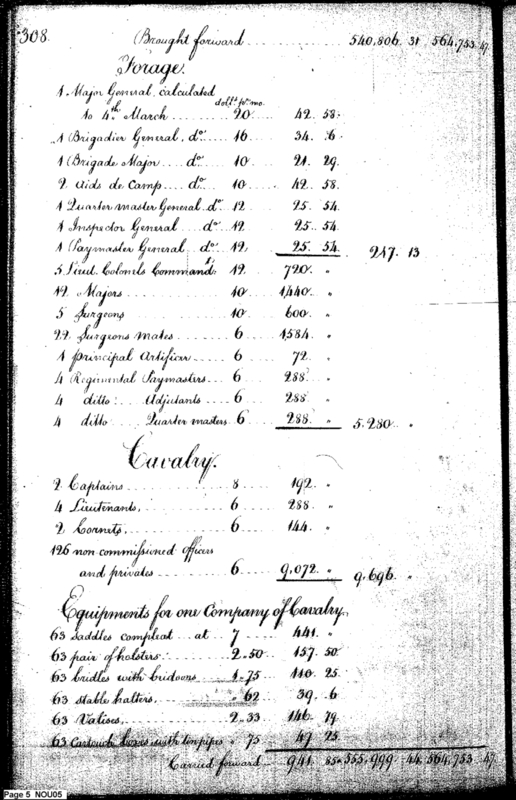 308. Brought forward 540,806. 31 564,753 47.
Forage.
1 Major General, calculated
dolls. pr. mo.
to 4th March 20 42 58.
1 Brigadier General, do. 16 34. 6.
1 Brigade Major do. 10 21. 29.
2 aids de Camp do. 10 42. 58.
1 Quarter master General do. 12 25. 54.
1 Inspector General do. 12. 25. 54.
1 Paymaster General do. 12. 25. 54. 217. 13
5 Lieut. Colonels Command: 12 720. "
12 Majors 10 1,440. "
5 Surgeons 10 600. "
22 Surgeons mates 6 1584. "
1 principal Artificer 6 72. "
4 Regimental Paymasters 6 288. "
4 ditto: Adjutants 6 288. "
4 ditto Quarter masters 6 288. " 5.280. "
Cavalry.
2 Captains 8 192. "
4 Lieutenants, 6 288. "
2 Cornets, 6 144. "
126 non commissioned officers
and privates 6 9,072. " 9,696. "
Equipments for one Company of Cavalry
63 Saddles compleat at 7 441. "
63 pair of holsters 2.50 157. 50.
63 bridles with bridoons 1.75 110. 25.
63 stable halters, " 62 39. 6
63 Valises, 2.33 146. 79.
63 Cartouch boxes with tin pipes " 75 47 25.
Carried forward 941. 85. 555,999 44. 564,753. 47.
Page 5 NOU05